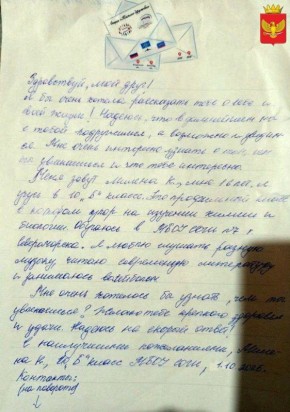 Здравствуй, мой друг!
Я бы очень хотела рассказать тебе о себе и
моей жизни! Надеюсь, что в дальнейшем мы
с тобой подружимся, а возможно и увидим-
ся. Мне очень интересно узнать о тебе, чем
ты увлекаешься и что тебе интересно.
Меня зовут К., мне 16 лет, я
учусь в 10 "Б" классе. Это профильный класс
в котором упор на изучение химии и
биологии. Обучаюсь в МБОУ СОШ №7 г.
Североморска. Я люблю слушать разную
музыку, читаю современную литературу
и занимаюсь волейболом.
Мне очень хотелось бы узнать, чем ты
увлекаешься? Желаю тебе крепкого здоровья
и удачи. Надеюсь на скорый ответ.
С наилучшими пожеланиями,
К., 10 "Б" класс МБОУ СОШ,
Контакты:
(на обороте)